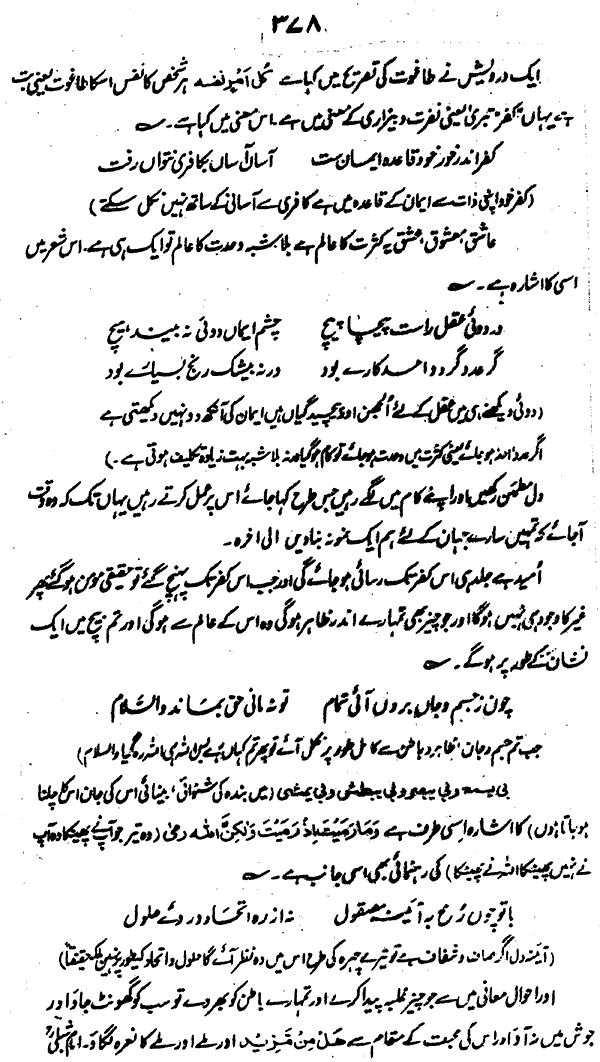 ۳۷۸
ایک درویش نے طاغوت کی تصریح میں کہا ہے کل امیر نفسہ ہر شخص کا نفس اسکا طاغوت یعنی بت
ہے یہاں "کفر" تبریٰ یعنی نفرت و بیزاری کے معنی میں ہے۔ اس معنی میں کہا ہے۔
کفر اندر خور خود قاعدہ ایمان ست آساں آساں بکافری نتواں رفت
(کفر خود اپنی ذات سے ایمان کے قاعدہ میں ہے کافری سے آسانی کے ساتھ نہیں نکل سکتے)
عاشق، معشوق، عشق یہ کثرت کا عالم ہے بلا شبہ وحدت کا عالم تو ایک ہی ہے۔ اس شعر میں
اسی کا اشارہ ہے۔
در دوئی عقل راست پیچا پیچ چشم ایماں دوئی نہ بیند ہیچ
گر عدد گردد احد کارے بود ورنہ بیشک رنج بسیارے بود
(دوئی دیکھنے ہی میں عقل کے لئے اُلجھن اور پیچیدگیاں ہیں ایمان کی آنکھ دو نہیں دیکھتی ہے
اگر عدد احد ہو جائے یعنی کثرت میں وحدت ہو جائے تو کام ہو گیا ورنہ بلا شبہ بہت زیادہ تکلیف ہوتی ہے۔)
دل مطمئن رکھیں اور اپنے کام میں لگے رہیں جس طرح کہا جائے اس پر عمل کرتے رہیں یہاں تک کہ وہ وقت
آجائے کہ تمہیں سارے جہان کے لئے ہم ایک نمونہ بنا دیں الی اخرہ۔
اُمید ہے جلد ہی اس کفر تک رسائی ہو جائے گی اور جب اس کفر تک پہنچ گئے تو حقیقی مومن ہو گئے پھر
غیر کا وجود ہی نہیں ہوگا اور جو چیز بھی تمہارے اندر ظاہر ہوگی وہ اس کے عالم سے ہوگی اور تم بیچ میں ایک
نشان کے طور پر ہو گے۔
چون ز جسم و جاں بروں آئی تمام تو نہ مانی حق بماند والسلام
(جب تم جسم و جان، ظاہر و باطن سے کامل طور پر نکل آئے تو پھر تم کہاں رہے بس اللہ ہی اللہ رہ گیا والسلام)
بی یسمع وبی یبصر وبی یبطش وبی یمشی (میں بندہ کی شنوائی، بینائی اس کی جان اس کا چلنا
ہو جاتا ہوں) کا اشارہ اسی طرف ہے وَمَا رَمَيْتَ اِذْ رَمَيْتَ وَلٰكِنَّ اللہ رمیٰ (وہ تیر جو آپ نے پھینکا وہ آپ
نے نہیں پھینکا اللہ نے پھینکا) کی رہنمائی بھی اسی جانب ہے۔
با تو چوں رخ بہ آئینہ مصقول نہ از رہ اتحاد و در دئے حلول
(آئینہ دل اگر صاف و شفاف ہے تو تیرے چہرہ کی طرح اس میں وہ نظر آئے گا حلول و اتحاد کیطور پر نہیں بلکہ حقیقتاً)
اور احوال معانی میں سے جو چیز غلبہ پیدا کرے اور تمہارے باطن کو بھر دے تو سب کو گھونٹ جاؤ اور
جوش میں نہ آؤ اور اس کی محبت کے مقام سے هَلْ مِنْ مَّزِيْد اور ملے اور ملے کا نعرہ لگاؤ۔ امام شبلیؒ